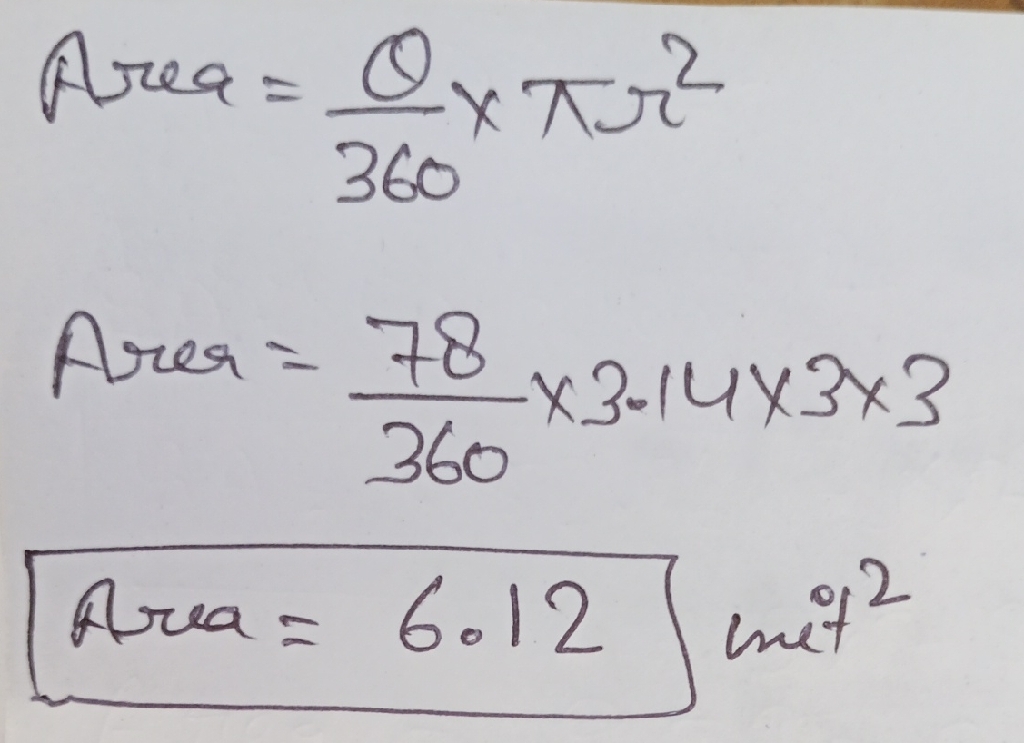 Area = θ/360 × πr²
Area = 78/360 × 3.14 × 3 × 3
Area = 6.12 unit²